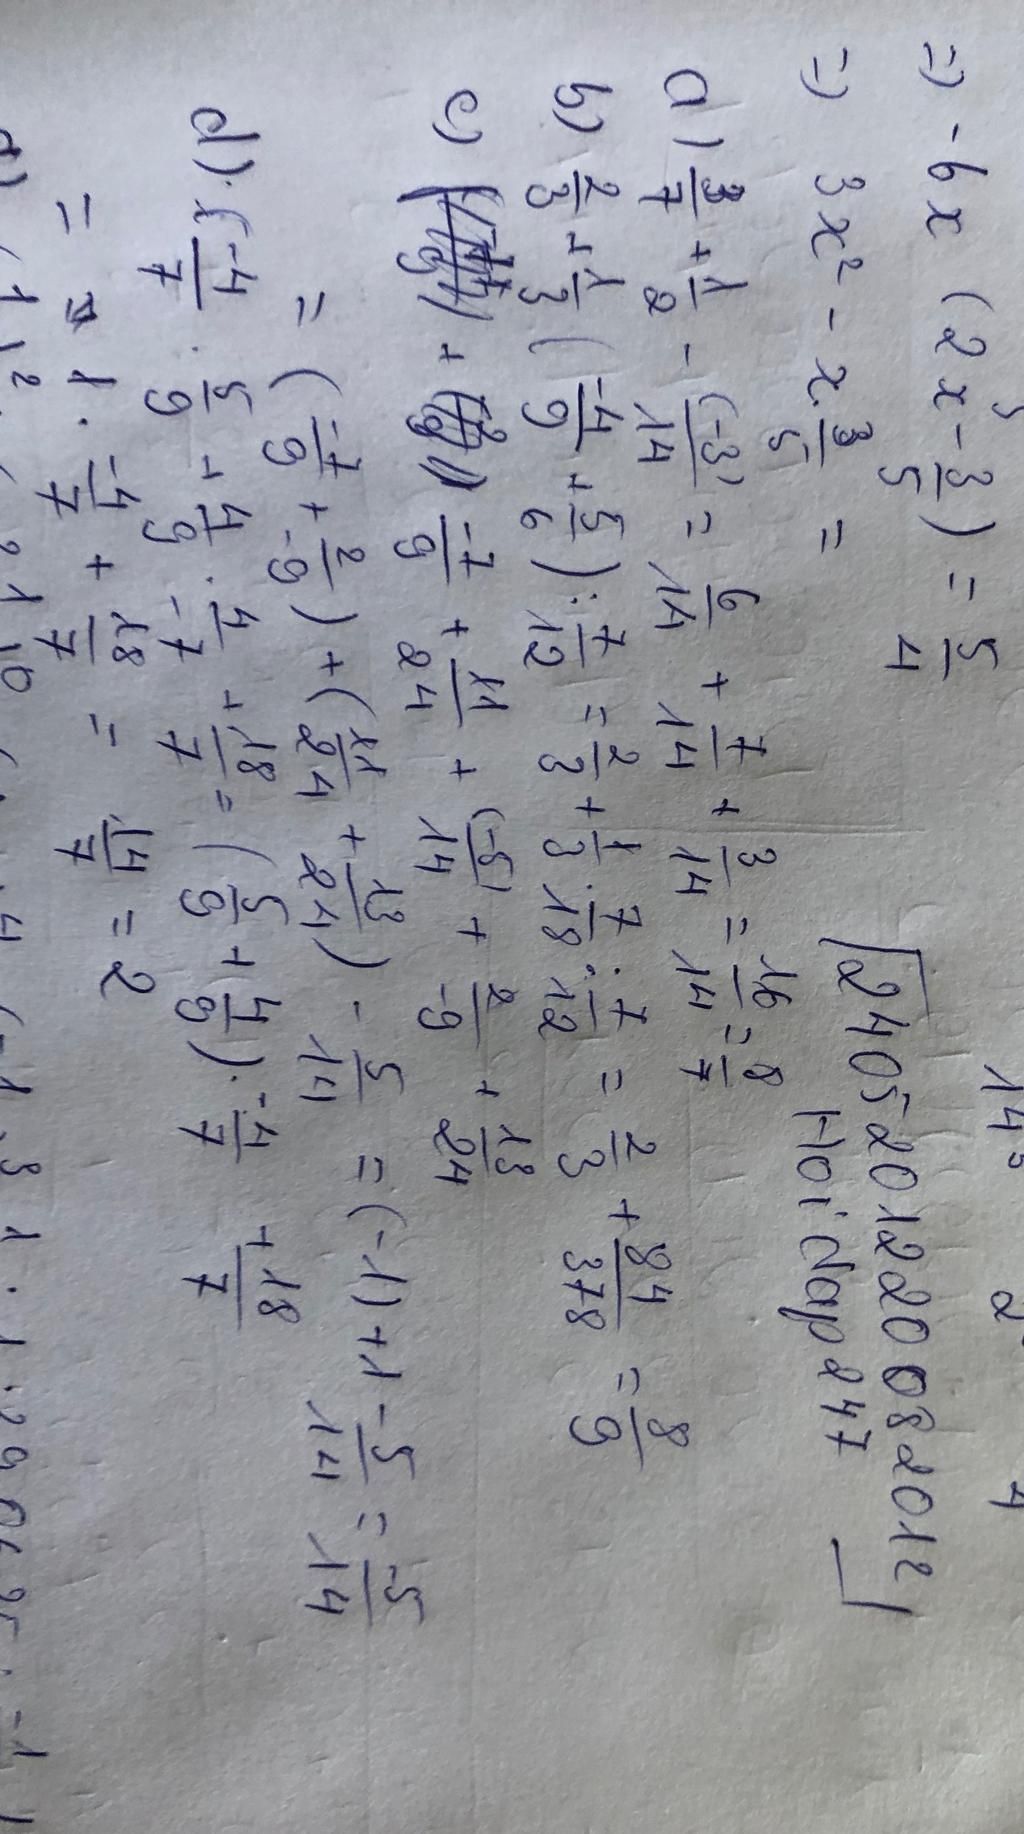 =) -6x (2x - 3/5) = 5/4
=) 3x² - x. 3/5 =
2405201220082012
Hoidap247
a) 3/7 + 1/2 - (-3)/14 = 6/14 + 7/14 + 3/14 = 16/14 = 8/7
b) 2/3 + 1/3 (-4/9 + 5/6) : 7/12 = 2/3 + 1/3 . 7/18 : 7/12 = 2/3 + 84/378 = 8/9
c) -7/9 + 11/24 + (-5)/14 + 2/-9 + 13/24
= (-7/9 + 2/-9) + (11/24 + 13/24) - 5/14 = (-1) + 1 - 5/14 = -5/14
d) -4/7 . 5/9 + 4/9 . 4/-7 + 18/7 = (5/9 + 4/9) . -4/7 + 18/7
= 1 . -4/7 + 18/7 = 14/7 = 2